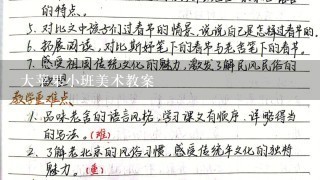 的特点。
5. 对比文中孩子们过春节的情景,说说自己是怎样过春节的。
6. 拓展阅读,对比斯好笔下的春节与老舍笔下的春节。
7. 感受祖国传统文化的魅力,激发了解民风民俗的
大苹果小班美术教案
教学重难点
1. 品味老舍的语言风格,学习课文有顺序、详略得当
的写法。(难)
2. 了解老北京的风俗习惯,感受传统年文化的独特
魅力。(重)